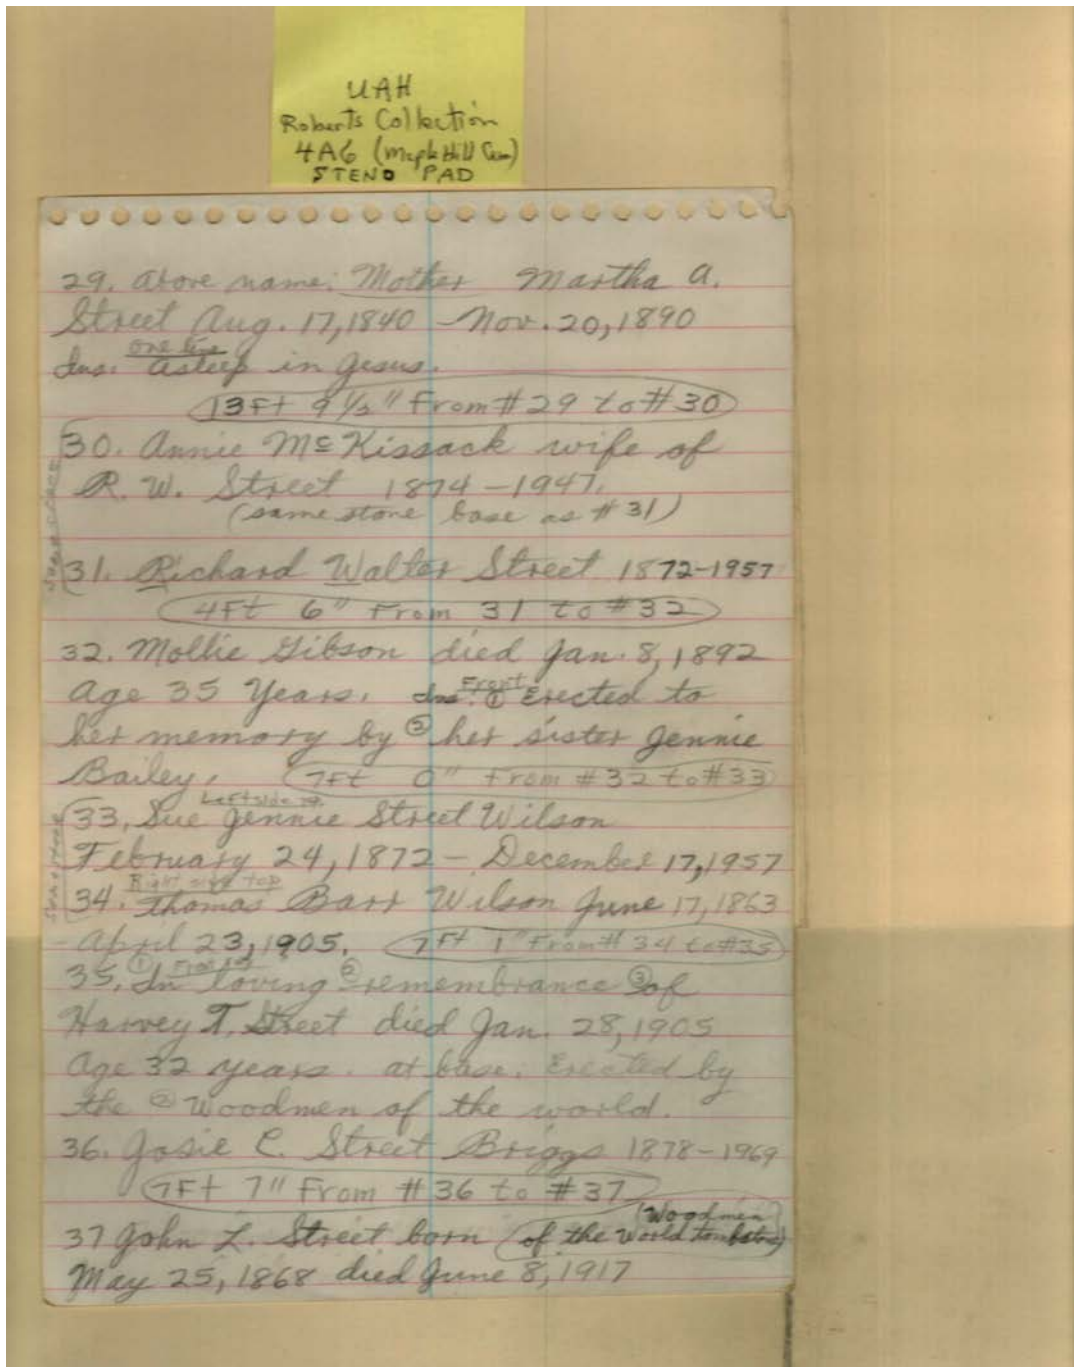 UAH
Roberts Collection
4A6 (Maple Hill Cem)
STENO PAD
29. Above name: Mother Martha A.
Street Aug. 17, 1840 – Nov. 20, 1890
one line
Ins. Asleep in Jesus.
13Ft 9 1/2" From #29 to #30
30. Annie McKissack wife of
R. W. Street 1874 – 1947.
(same stone base as #31)
31. Richard Walter Street 1872–1957
4Ft 6" From 31 to #32
32. Mollie Gibson died Jan. 8, 1892
Front
Age 35 Years. Ins. ① Erected to
her memory by ② her sister Jennie
Bailey. 7Ft 0" From #32 to #33
Left side top
33. Sue Jennie Street Wilson
February 24, 1872 – December 17, 1957
Right side top
34. Thomas Barr Wilson June 17, 1863
- April 23, 1905. 7Ft 1" From #34 to #35
① Front top
35. In loving ② remembrance ③ of
Harvey T. Street died Jan. 28, 1905
Age 32 years. at base: Erected by
the ② Woodmen of the world.
36. Josie C. Street Briggs 1878–1969
7Ft 7" From #36 to #37
(Woodmen
37 John L. Street born of the World tombstone)
May 25, 1868 died June 8, 1917